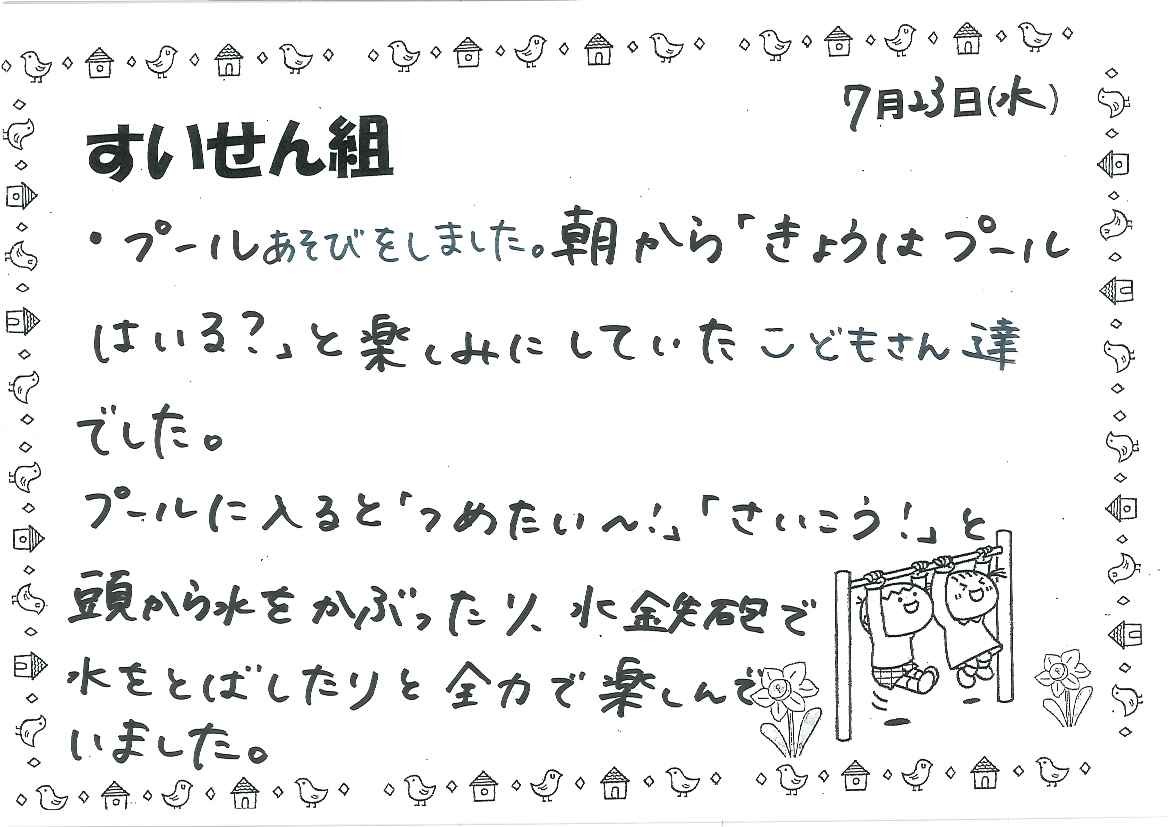 7月23日(水)
すいせん組
・プールあそびをしました。朝から「きょうはプール
はいる?」と楽しみにしていたこどもさん達
でした。
プールに入ると「つめたい〜!」「さいこう!」と
頭から水をかぶったり、水鉄砲で
水をとばしたりと全力で楽しんで
いました。